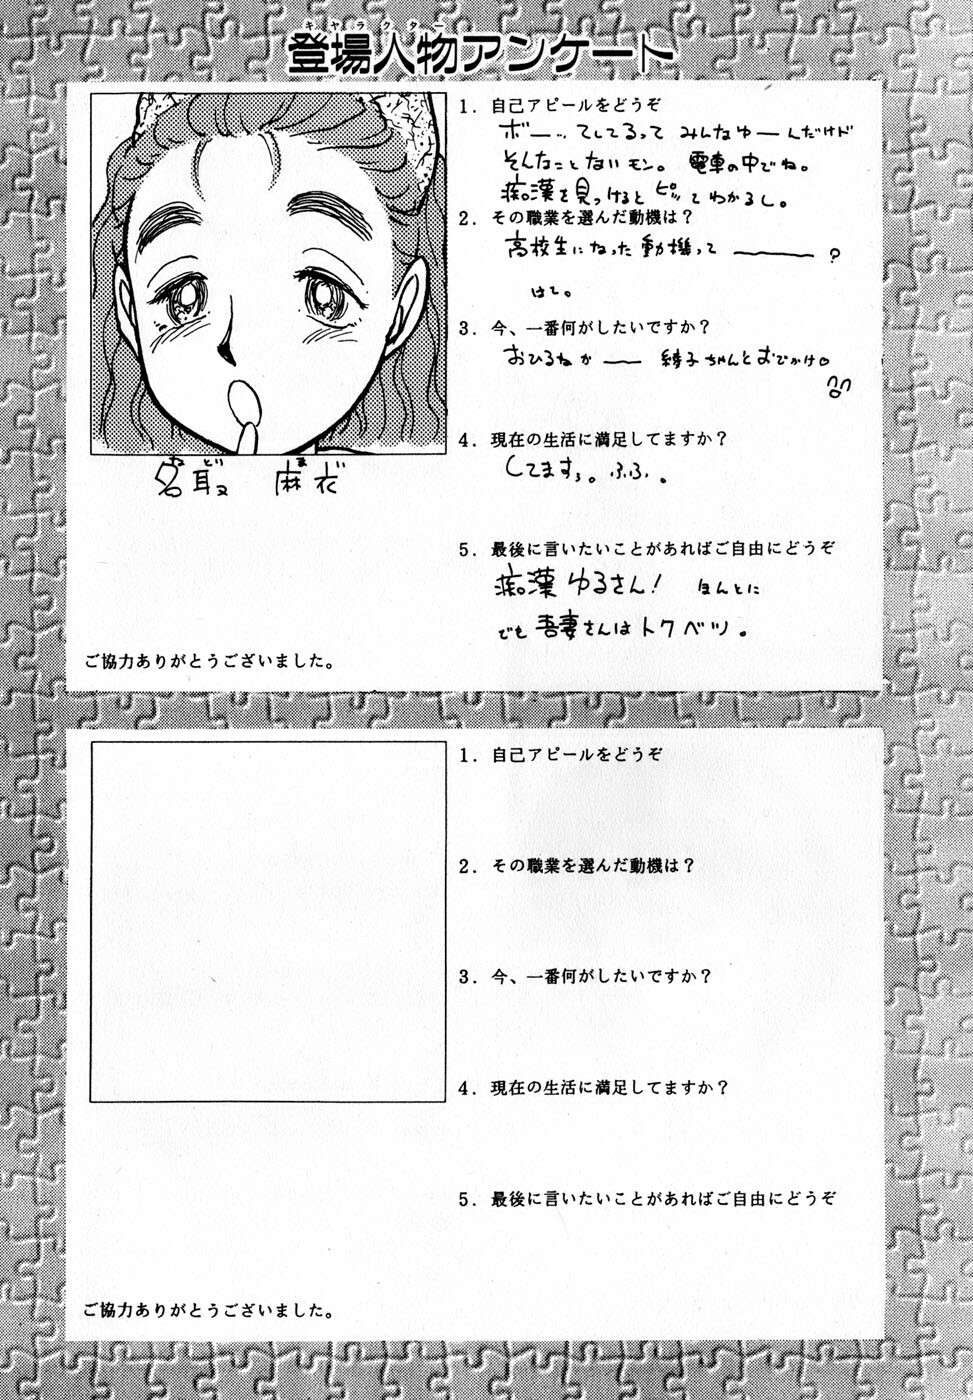 キャラクター
登場人物アンケート
1. 自己アピールをどうぞ
ボー…てしてるって みんなゆーんだけド
そんなことないモン。 電車の中でね。
痴漢を見っけるとピッてわかるし。
2. その職業を選んだ動機は?
高校生になった動機って ―――?
はて。
3. 今、一番何がしたいですか?
おひるねか ―― 綾子ちゃんとおでかけ♡
4. 現在の生活に満足してますか?
してますぅ。ふふ。
5. 最後に言いたいことがあればご自由にどうぞ
痴漢ゆるさん! ほんとに
でも 吾妻さんはトクベツ。
なとり ま
名取 麻衣
ご協力ありがとうございました。
1. 自己アピールをどうぞ
2. その職業を選んだ動機は?
3. 今、一番何がしたいですか?
4. 現在の生活に満足してますか?
5. 最後に言いたいことがあればご自由にどうぞ
ご協力ありがとうございました。